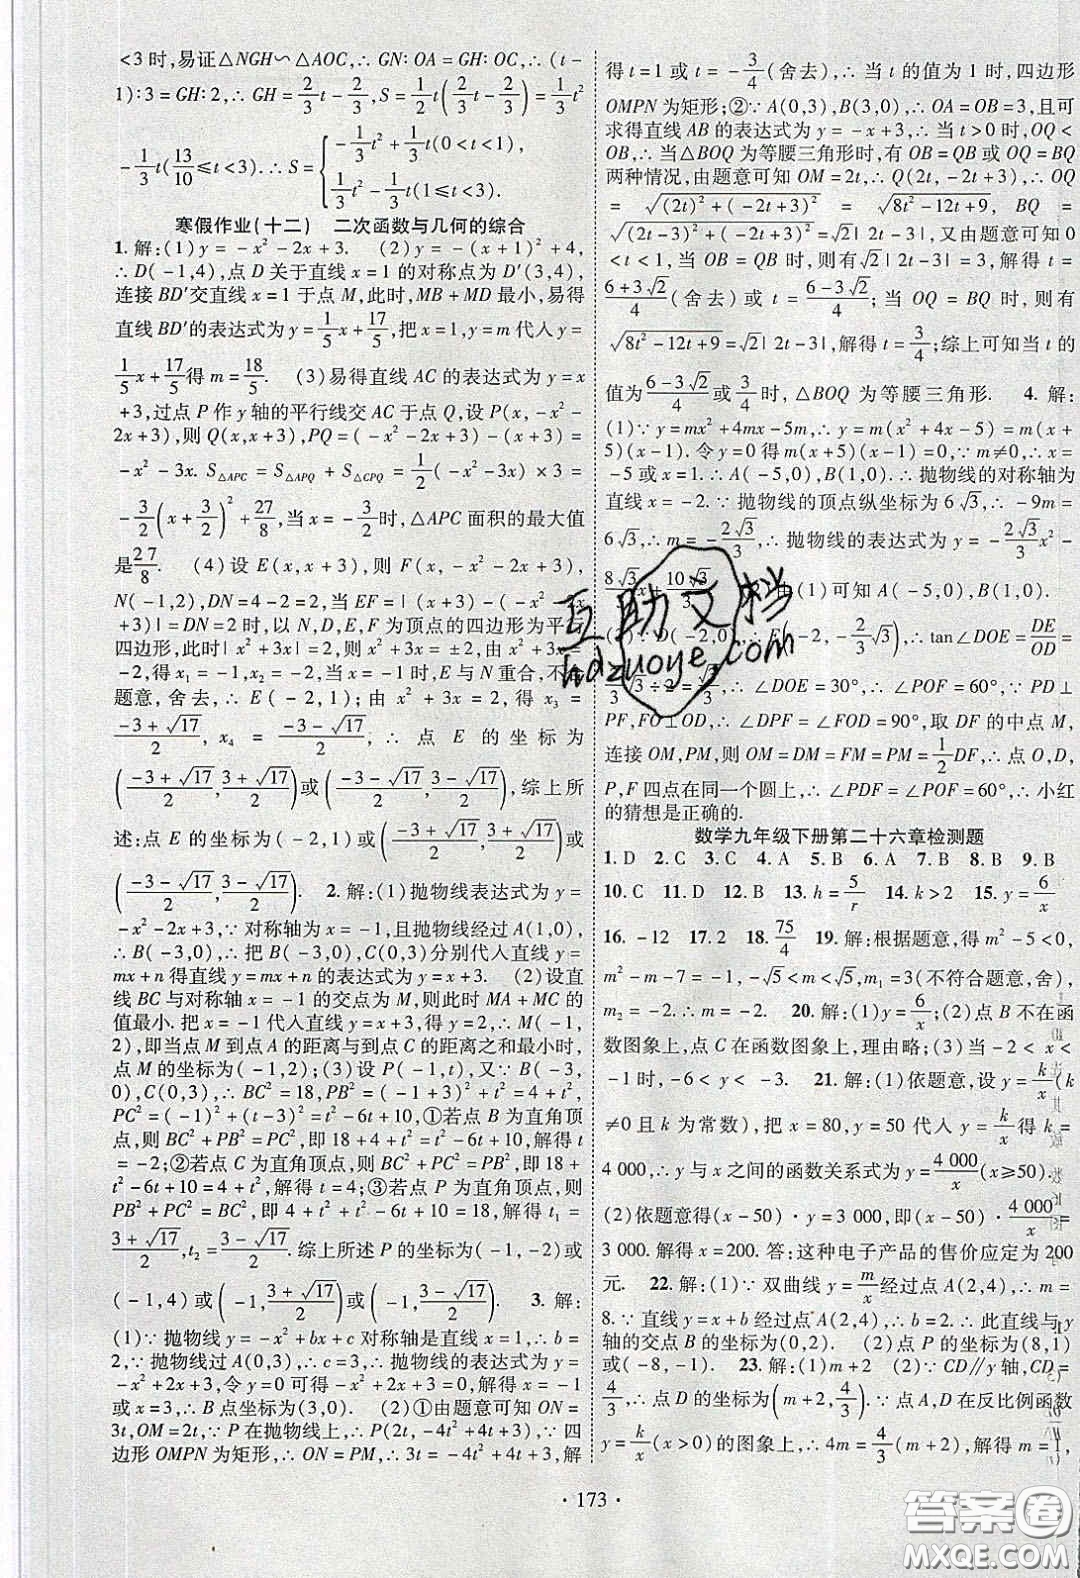 <3时,易证△NGH∽△AOC,∴GN:OA=GH:OC,∴(t-
1):3=GH:2,∴GH=2/3t-2/3,S=1/2t(2/3t-2/3)=1/3t²
-1/3t(13/10≤t<3).∴S={-1/3t²+1/3t(0<t<1),
1/3t²-1/3t(1≤t<3)
寒假作业(十二) 二次函数与几何的综合
1.解:(1)y=-x²-2x+3. (2)y=-(x+1)²+4,
∴D(-1,4),点D关于直线x=1的对称点为D'(3,4),
连接BD'交直线x=1于点M,此时,MB+MD最小,易得
直线BD'的表达式为y=1/5x+17/5,把x=1,y=m代人y=
1/5x+17/5得m=18/5. (3)易得直线AC的表达式为y=x
+3,过点P作y轴的平行线交AC于点Q,设P(x,-x²-
2x+3),则Q(x,x+3),PQ=(-x²-2x+3)-(x+3)=
-x²-3x. S△APC=S△APQ+S△CPQ=1/2(-x²-3x)×3=
-3/2(x+3/2)²+27/8,当x=-3/2时,△APC面积的最大值
是27/8. (4)设E(x,x+3),则F(x,-x²-2x+3),
N(-1,2),DN=4-2=2,当EF=|(x+3)-(-x²-2x
+3)|=DN=2时,以N,D,E,F为顶点的四边形为平行
四边形,此时|x²+3x|=2,∴x²+3x=±2,由x²+3x=
-2,得x₁=-2,x₂=-1(此时,点E与N重合,不合
题意,舍去,∴E(-2,1);由x²+3x=2,得x₃=
(-3+√17)/2,x₄=(-3-√17)/2,∴点E的坐标为
((-3+√17)/2,(3+√17)/2)或((-3-√17)/2,(3-√17)/2),综上所
述:点E的坐标为(-2,1)或((-3+√17)/2,(3+√17)/2)或
((-3-√17)/2,(3-√17)/2). 2.解:(1)抛物线表达式为y=
-x²-2x+3,∵对称轴为x=-1,且抛物线经过A(1,0),
∴B(-3,0),∴把B(-3,0),C(0,3)分别代人直线y=
mx+n得直线y=mx+n的表达式为y=x+3. (2)设直
线BC与对称轴x=-1的交点为M,则此时MA+MC的
值最小.把x=-1代人直线y=x+3,得y=2,∴M(-1,
2),即当点M到点A的距离与到点C的距离之和最小时,
点M的坐标为(-1,2);(3)设P(-1,t),又B(-3,
0),C(0,3),∴BC²=18,PB²=(-1+3)²+t²=4+t²,
PC²=(-1)²+(t-3)²=t²-6t+10,①若点B为直角顶
点,则BC²+PB²=PC²,即18+4+t²=t²-6t+10,解得t
=-2;②若点C为直角顶点,则BC²+PC²=PB²,即18+
t²-6t+10=4+t²,解得t=4;③若点P为直角顶点,则
PB²+PC²=BC²,即4+t²+t²-6t+10=18,解得t₁=
(3+√17)/2,t₂=(3-√17)/2.综上所述P的坐标为(-1,-2)或
(-1,4)或(-1,(3+√17)/2)或(-1,(3-√17)/2). 3.解:
(1)∵抛物线y=-x²+bx+c对称轴是直线x=1,∴b=
2,∵抛物线过A(0,3),∴c=3,∴抛物线的表达式为y=
-x²+2x+3,令y=0可得-x²+2x+3=0,解得x=-1
或x=3,∴B点坐标为(3,0). (2)①由题意可知ON=
3t,OM=2t,∵P在抛物线上,∴P(2t,-4t²+4t+3),∵四
边形OMPN为矩形,∴ON=PM,∴3t=-4t²+4t+3,解
得t=1或t=-3/4(舍去),∴当t的值为1时,四边形
OMPN为矩形;②∵A(0,3),B(3,0),∴OA=OB=3,且可
求得直线AB的表达式为y=-x+3,∴当t>0时,OQ<
OB,∴当△BOQ为等腰三角形时,有OB=QB或OQ=BQ
两种情况,由题意可知OM=2t,∴Q(2t,-2t+3),∴OQ
=√((2t)²+(-2t+3)²)=√(8t²-12t+9),BQ=
√((2t-3)²+(-2t+3)²)=√2|2t-3|,又由题意可知0
<t<1,当OB=QB时,则有√2|2t-3|=3,解得t=
(6+3√2)/4(舍去)或t=(6-3√2)/4;当OQ=BQ时,则有
√(8t²-12t+9)=√2|2t-3|,解得t=3/4;综上可知当t的
值为(6-3√2)/4或3/4时,△BOQ为等腰三角形. 4.解:
(1)∵y=mx²+4mx-5m,∴y=m(x²+4x-5)=m(x+
5)(x-1).令y=0得m(x+5)(x-1)=0,∵m≠0,∴x=
-5或x=1.∴A(-5,0),B(1,0).∴抛物线的对称轴为
直线x=-2.∵抛物线的顶点纵坐标为6√3,∴-9m=
6√3,∴m=-2√3/3,∴抛物线的表达式为y=-2√3/3x²-
8√3/3x+10√3/3. (2)由(1)可知A(-5,0),B(1,0).
∴D(-2,0),∴E(-2,-2/3√3),∴tan∠DOE=DE/OD=
2/3√3÷2=√3/3,∴∠DOE=30°,∴∠POF=60°,∵PD⊥
PF,FO⊥OD,∴∠DPF=∠FOD=90°,取DF的中点M,
连接OM,PM,则OM=DM=FM=PM=1/2DF,∴点O,D,
P,F四点在同一个圆上,∴∠PDF=∠POF=60°,∴小红
的猜想是正确的.
数学九年级下册第二十六章检测题
1. D 2. C 3. C 4. A 5. B 6. A 7. B 8. B 9. B
10. C 11. D 12. B 13. h=5/r 14. k>2 15. y=6/x
16. -12 17. 2 18. 75/4 19. 解:根据题意,得m²-5<0,
m²-m-7=-1,-√5<m<√5,m₁=3(不符合题意,舍),
m₂=-2. ∴m=-2. 20. 解:(1)y=6/x;(2)点B不在函
数图象上,点C在函数图象上,理由略;(3)当-2<x<
-1时,-6<y<-3. 21. 解:(1)依题意,设y=k/x(k
≠0且k为常数),把x=80,y=50代人y=k/x得k=
4 000,∴y与x之间的函数关系式为y=4 000/x(x≥50).
(2)依题意得(x-50)·y=3 000,即(x-50)·4 000/x=
3 000.解得x=200.答:这种电子产品的售价应定为200
元. 22. 解:(1)∵双曲线y=m/x经过点A(2,4),∴m=
8.∵直线y=x+b经过点A(2,4),∴b=2.∴此直线与y
轴的交点B的坐标为(0,2). (2)点P的坐标为(8,1)
或(-8,-1). 23. 解:(1)m+2 (2)∵CD∥y轴,CD=
4/3,∴点D的坐标为(m+2,4/3),∵点A,D在反比例函数
y=k/x(x>0)的图象上,∴4m=4/3(m+2),解得m=1,
·173·
互助文档
hdzuoye.com
答案圈
MXQE.COM